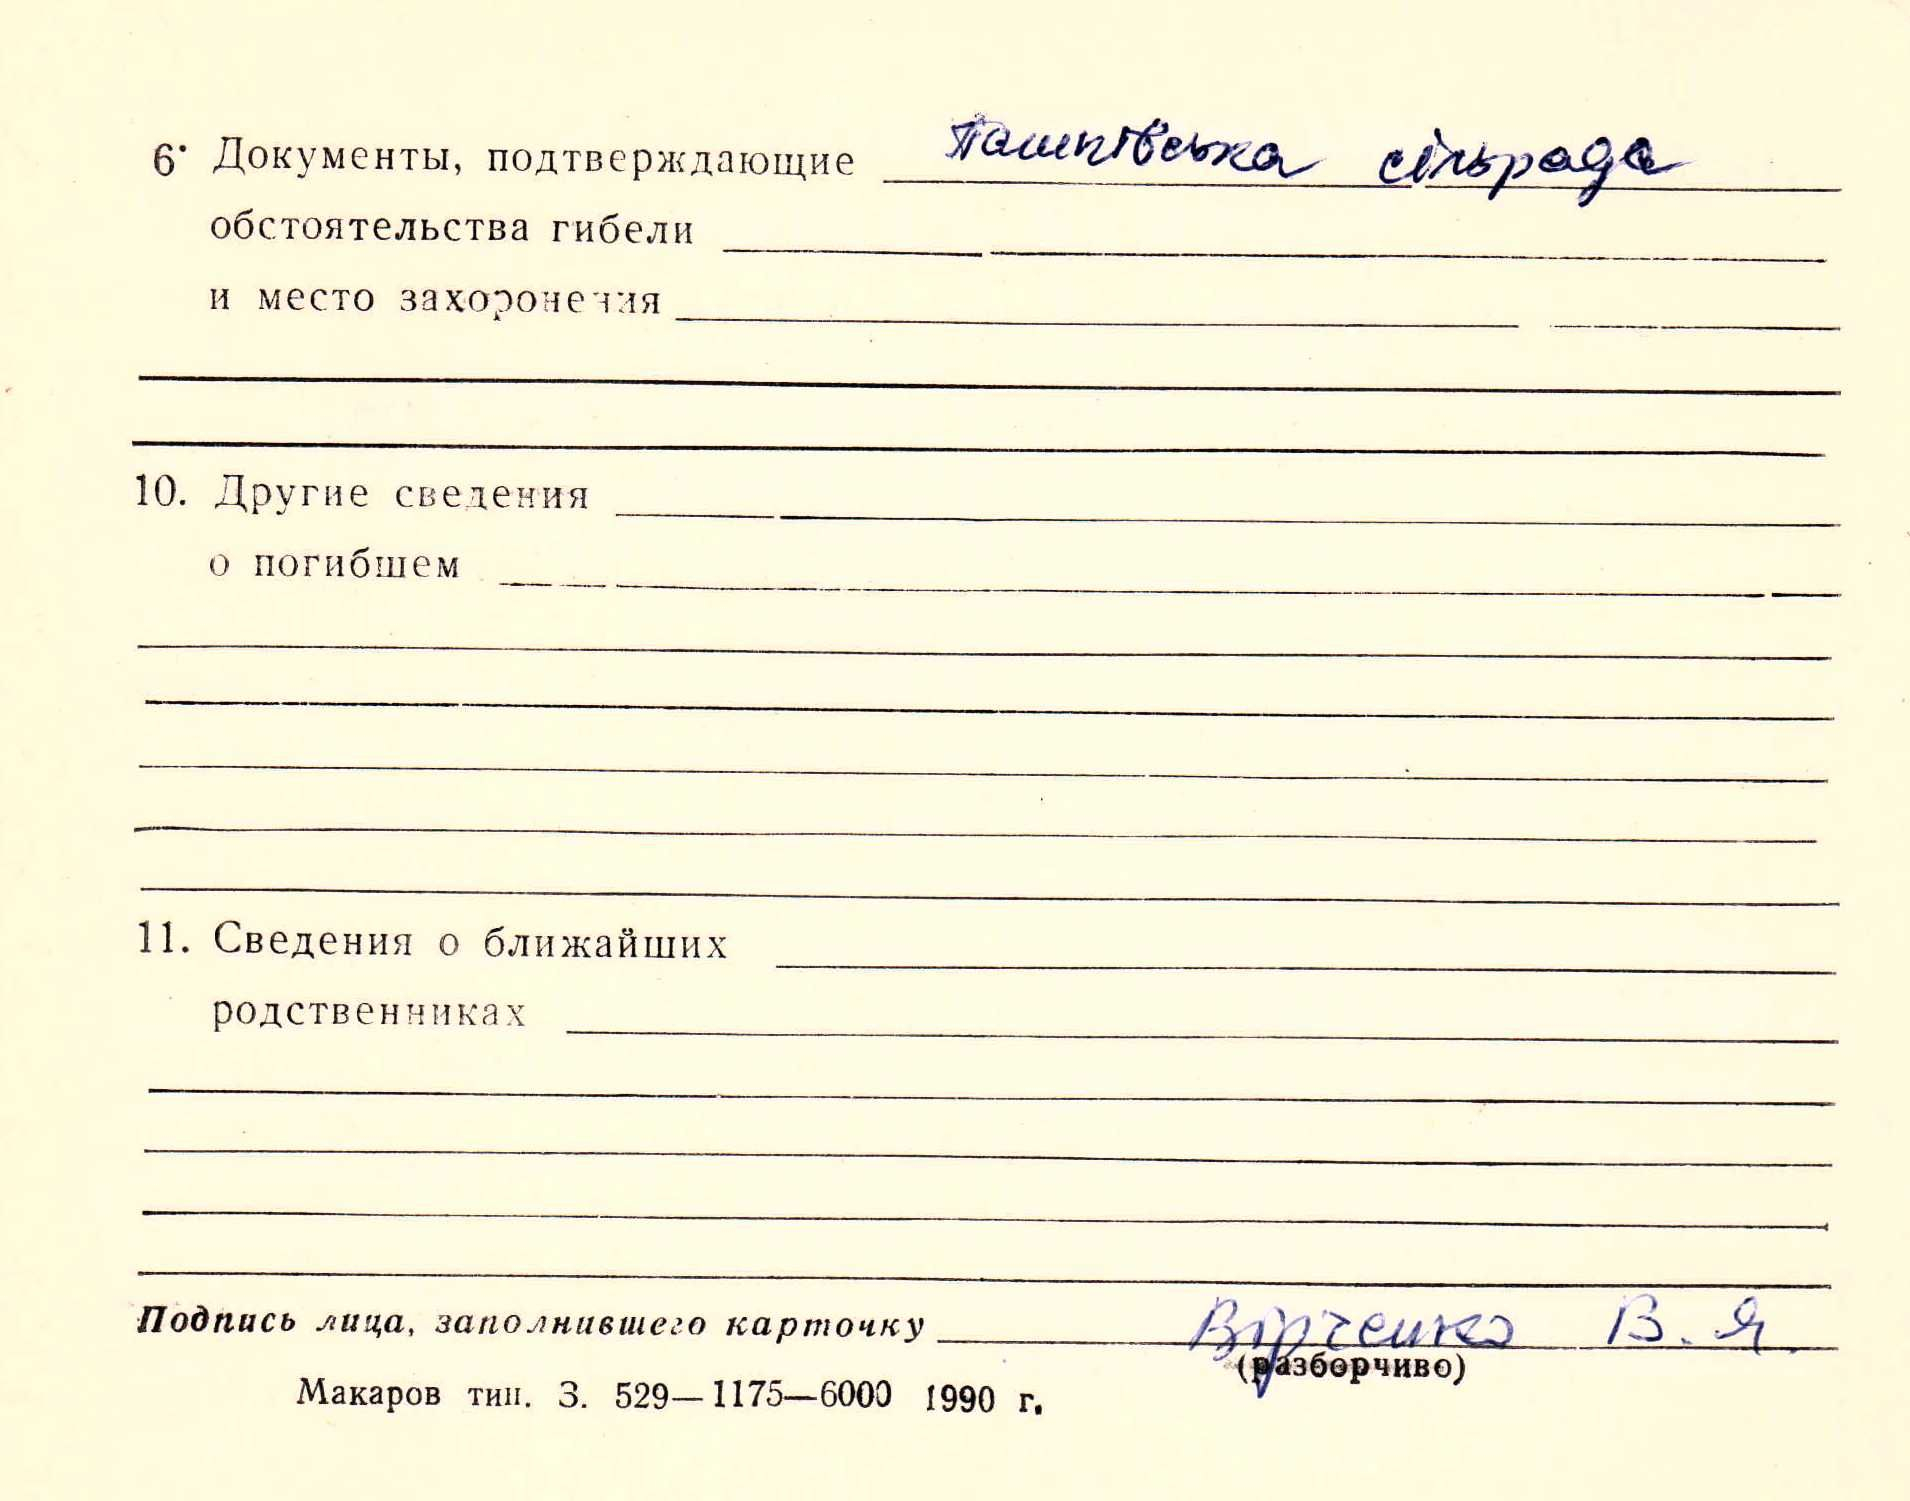 6. Документы, подтверждающие Пашківська сільрада
обстоятельства гибели
и место захоронения
10. Другие сведения
о погибшем
11. Сведения о ближайших
родственниках
Подпись лица, заполнившего карточку Вірченко В. Я.
(разборчиво)
Макаров тип. З. 529—1175—6000 1990 г.